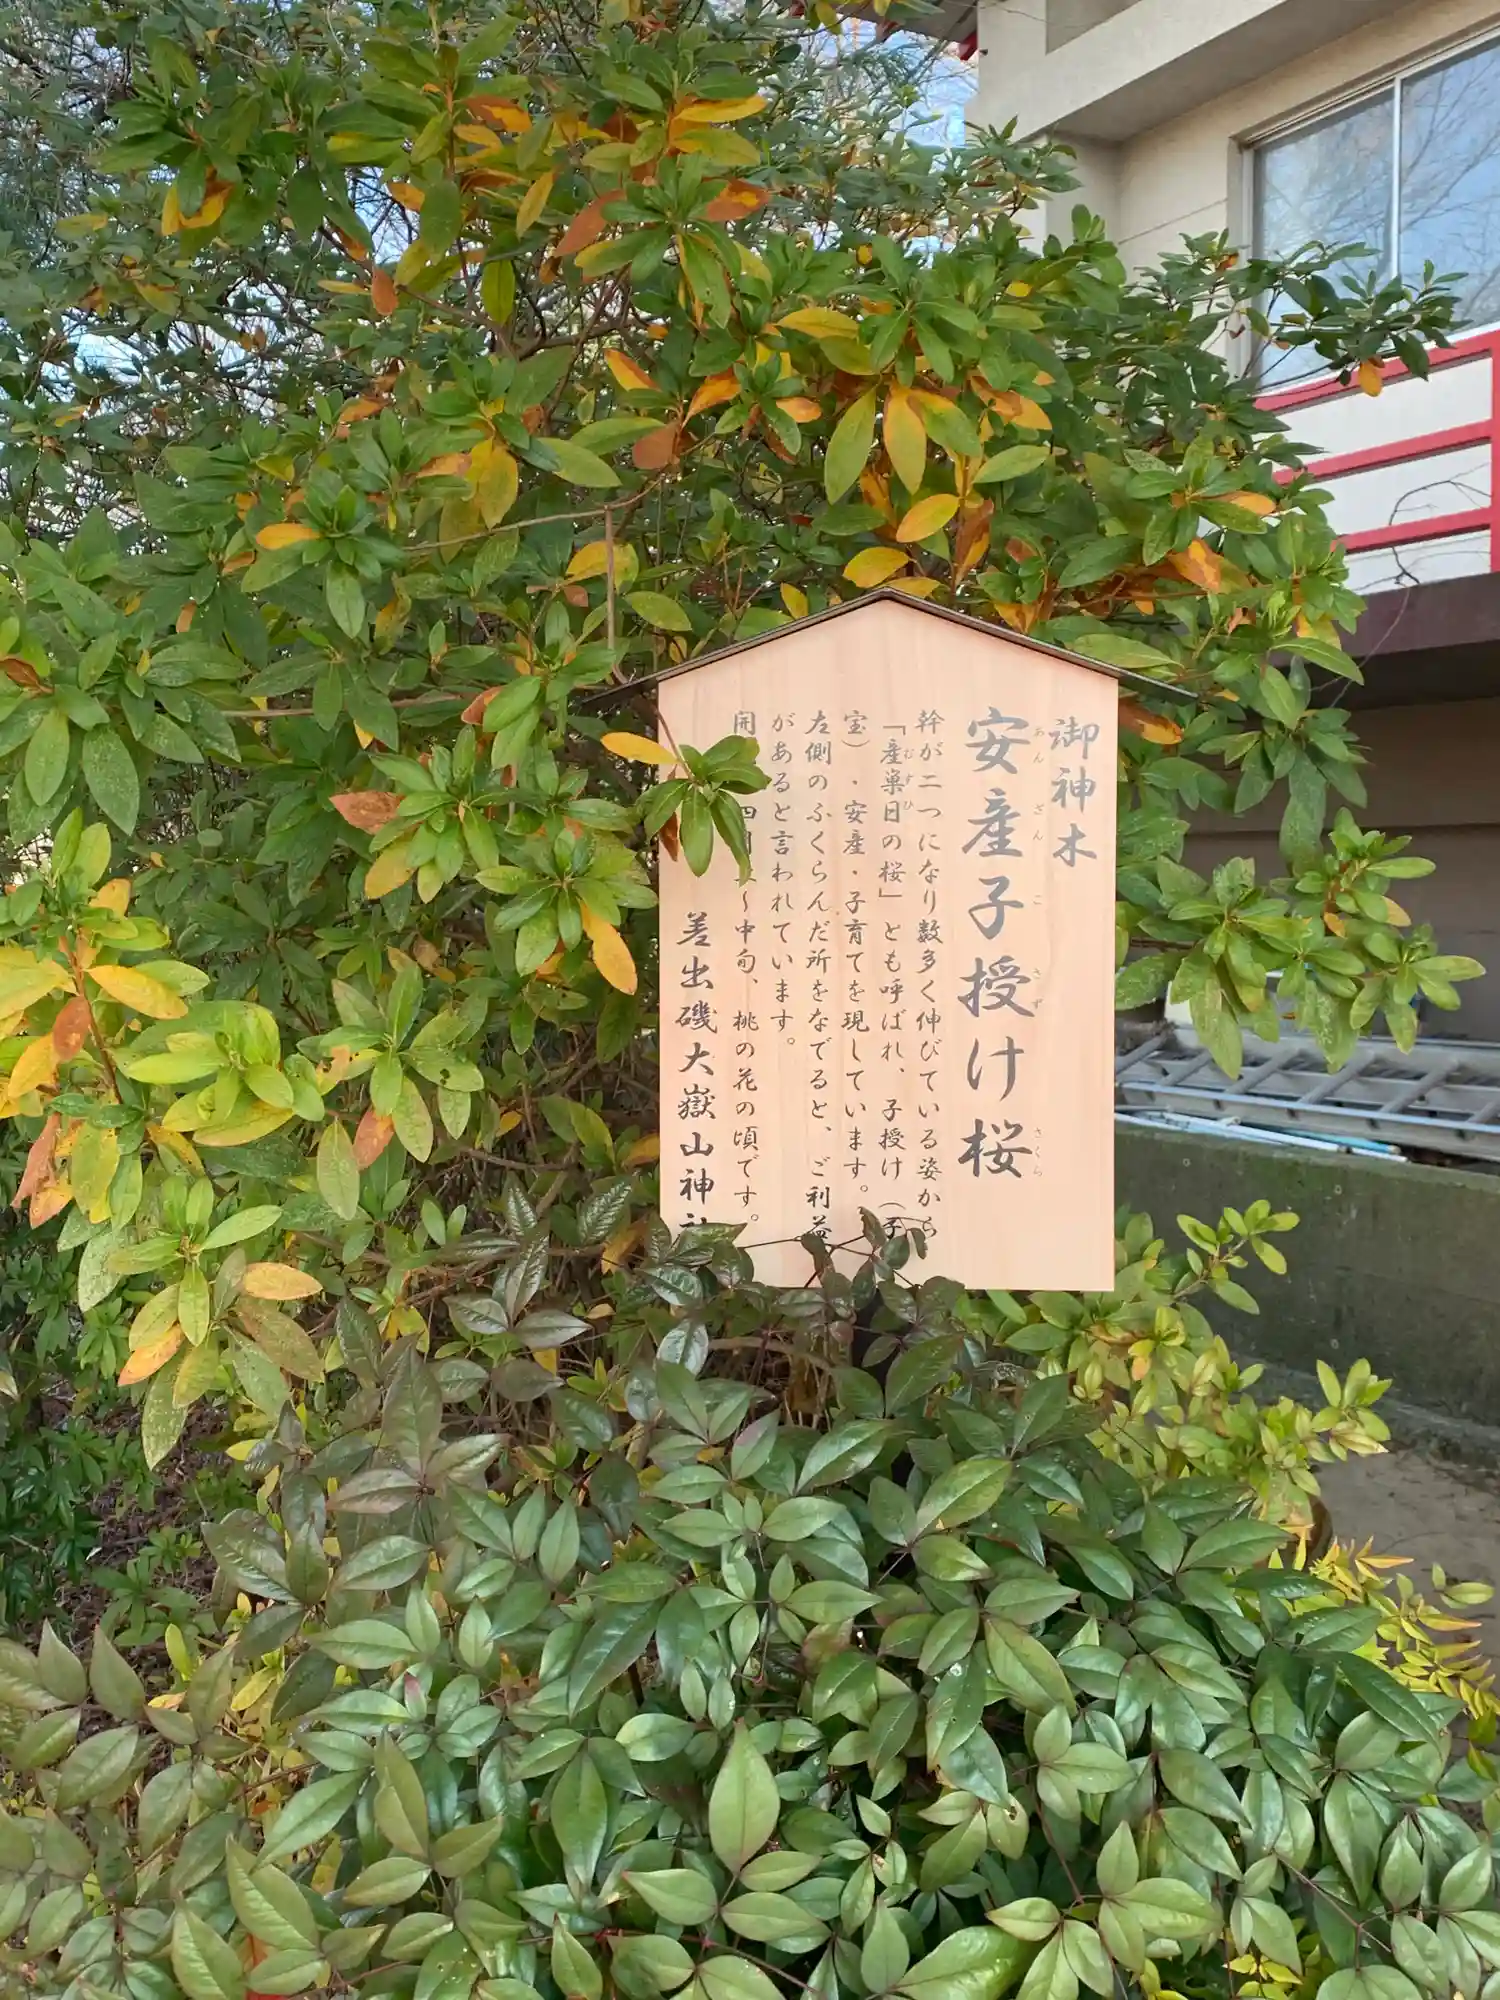 御神木
安産子授け桜
あん ざん こ さず さくら
幹が二つになり数多く伸びている姿から
「産巣日の桜」とも呼ばれ、子授け（子
むすひ
宝）・安産・子育てを現しています。
左側のふくらんだ所をなでると、ご利益
があると言われています。
開 四月 ～中旬、桃の花の頃です。
差出磯大嶽山神社